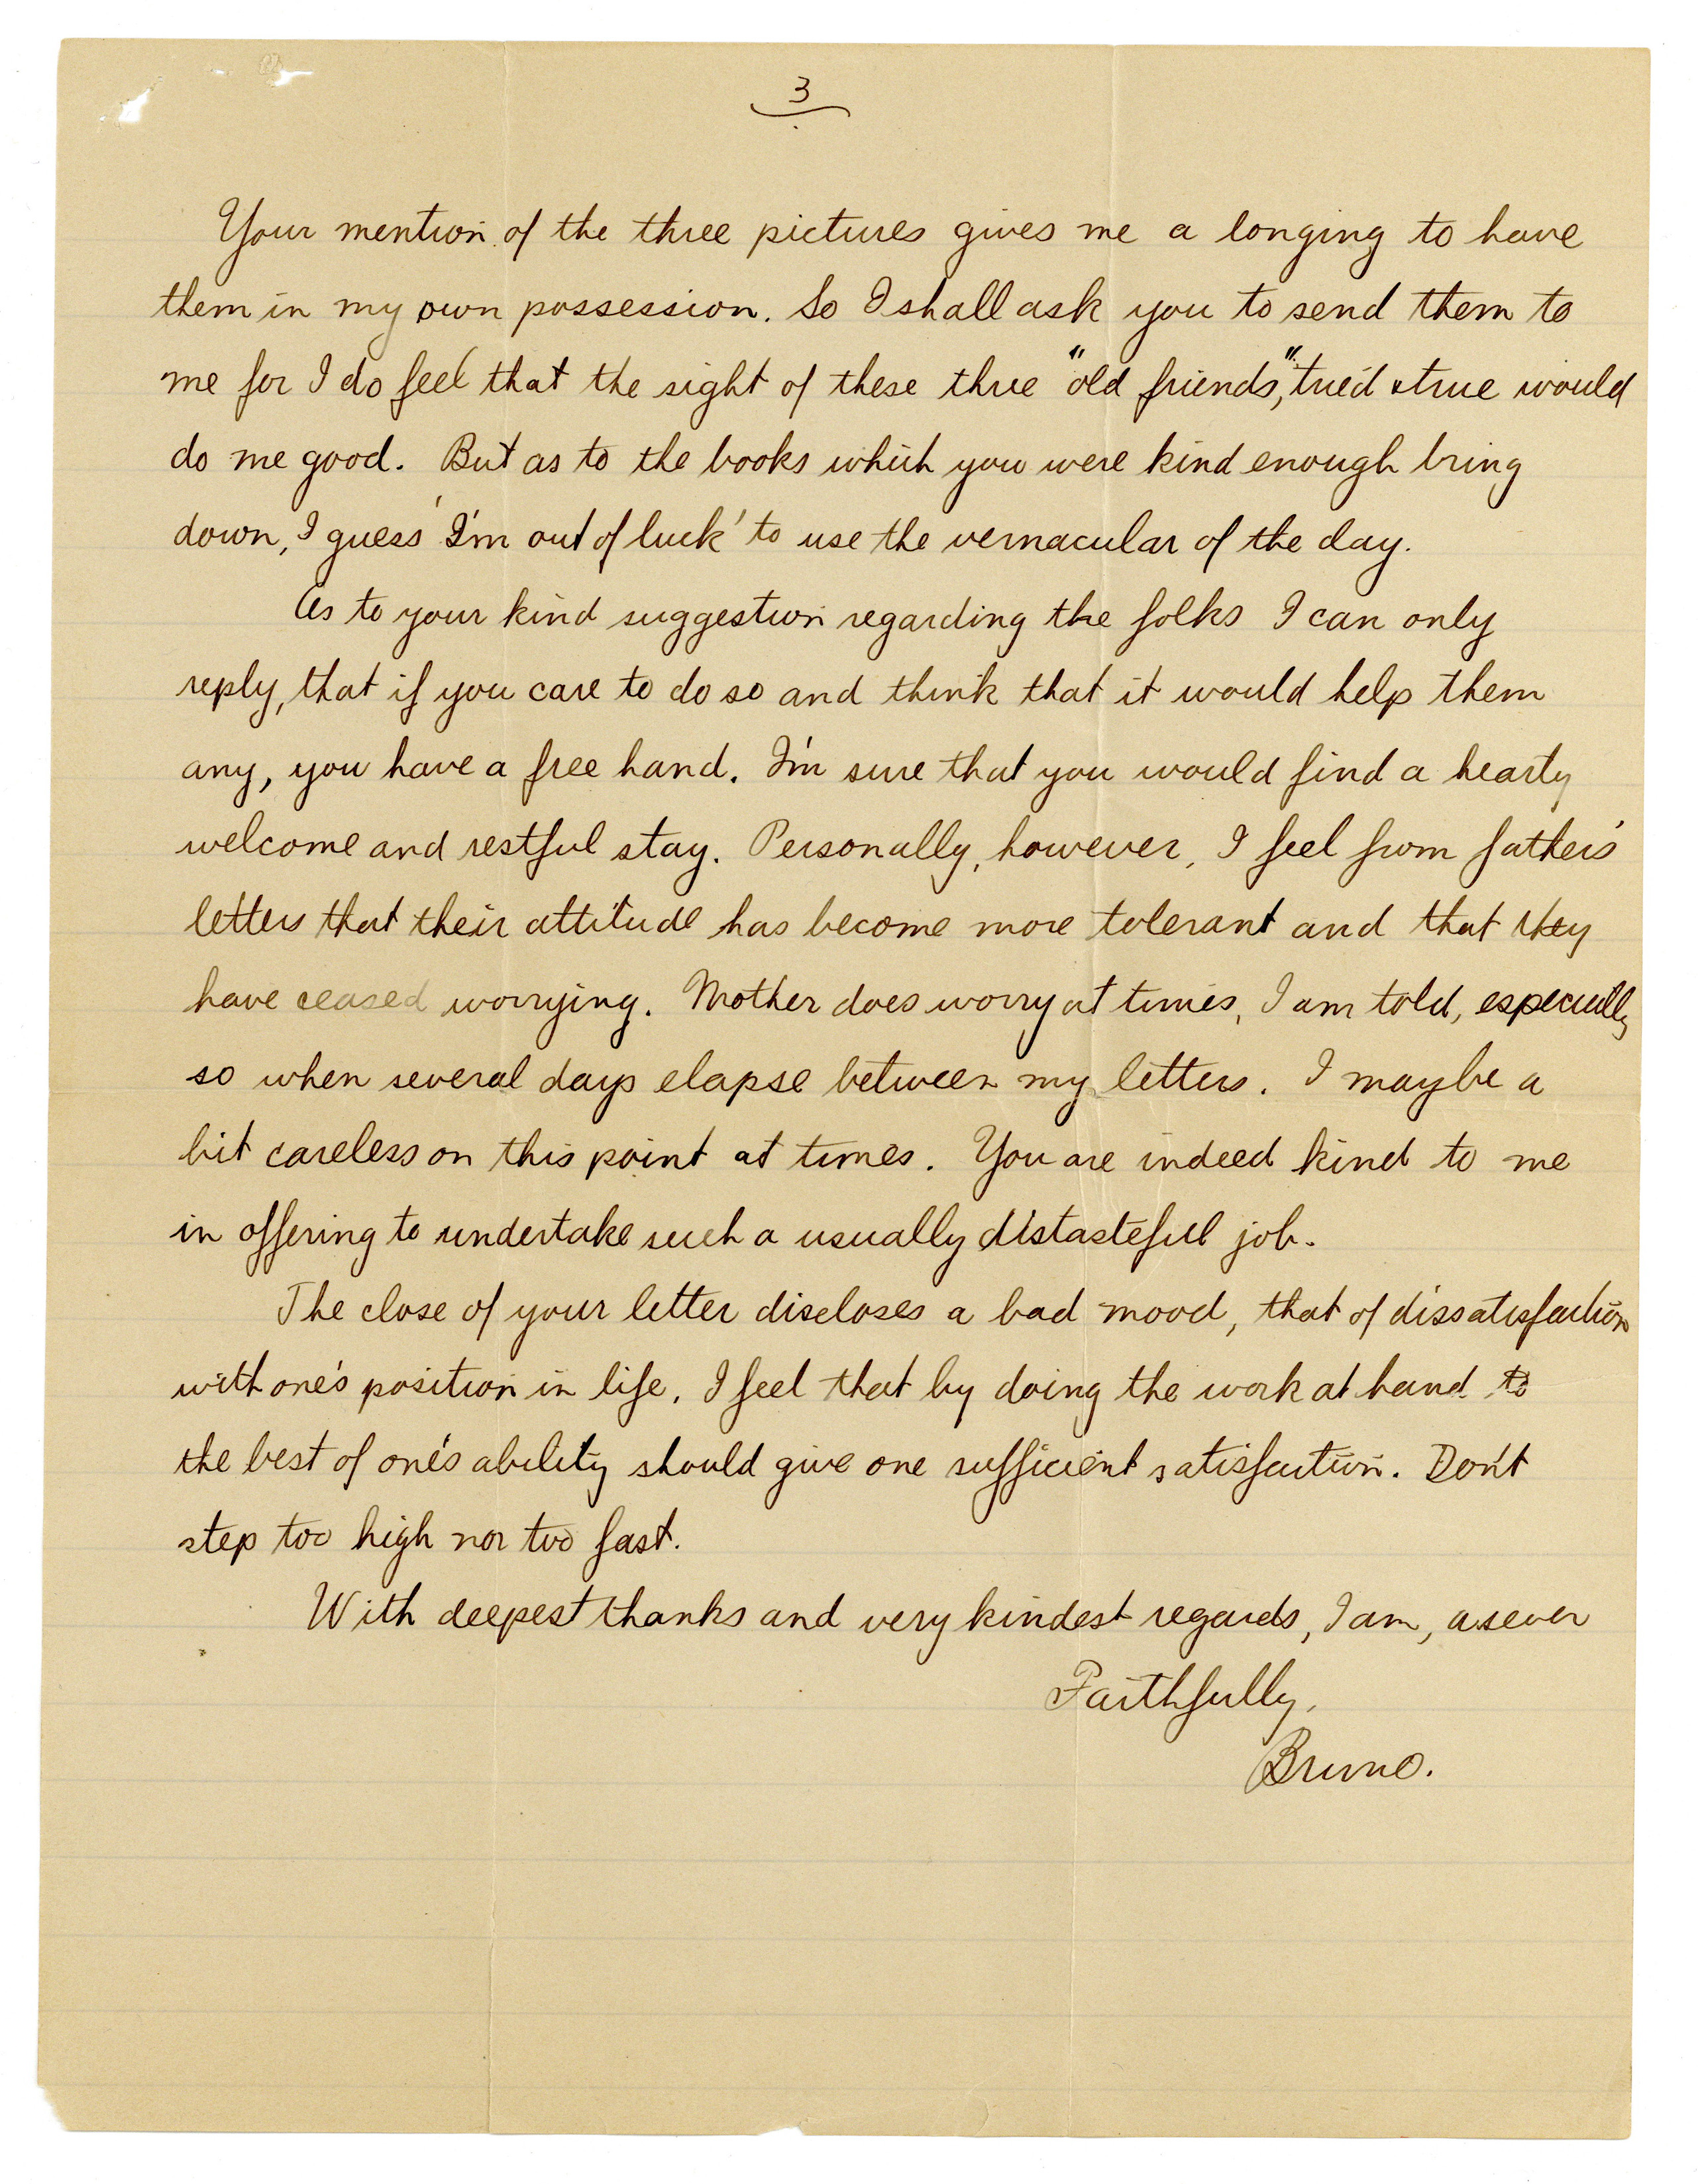 3
Your mention of the three pictures gives me a longing to have
them in my own possession. So I shall ask you to send them to
me for I do feel that the sight of these three "old friends", tried & true would
do me good. But as to the books which you were kind enough bring
down, I guess 'I'm out of luck' to use the vernacular of the day.
As to your kind suggestion regarding the folks I can only
reply, that if you care to do so and think that it would help them
any, you have a free hand. I'm sure that you would find a hearty
welcome and restful stay. Personally, however, I feel from father's
letters that their attitude has become more tolerant and that they
have ceased worrying. Mother does worry at times, I am told, especially
so when several days elapse between my letters. I maybe a
bit careless on this point at times. You are indeed kind to me
in offering to undertake such a usually distasteful job.
The close of your letter discloses a bad mood, that of dissatisfaction
with one's position in life. I feel that by doing the work at hand to
the best of one's ability should give one sufficient satisfaction. Don't
step too high nor too fast.
With deepest thanks and very kindest regards, I am, as ever
Faithfully,
Bruno.